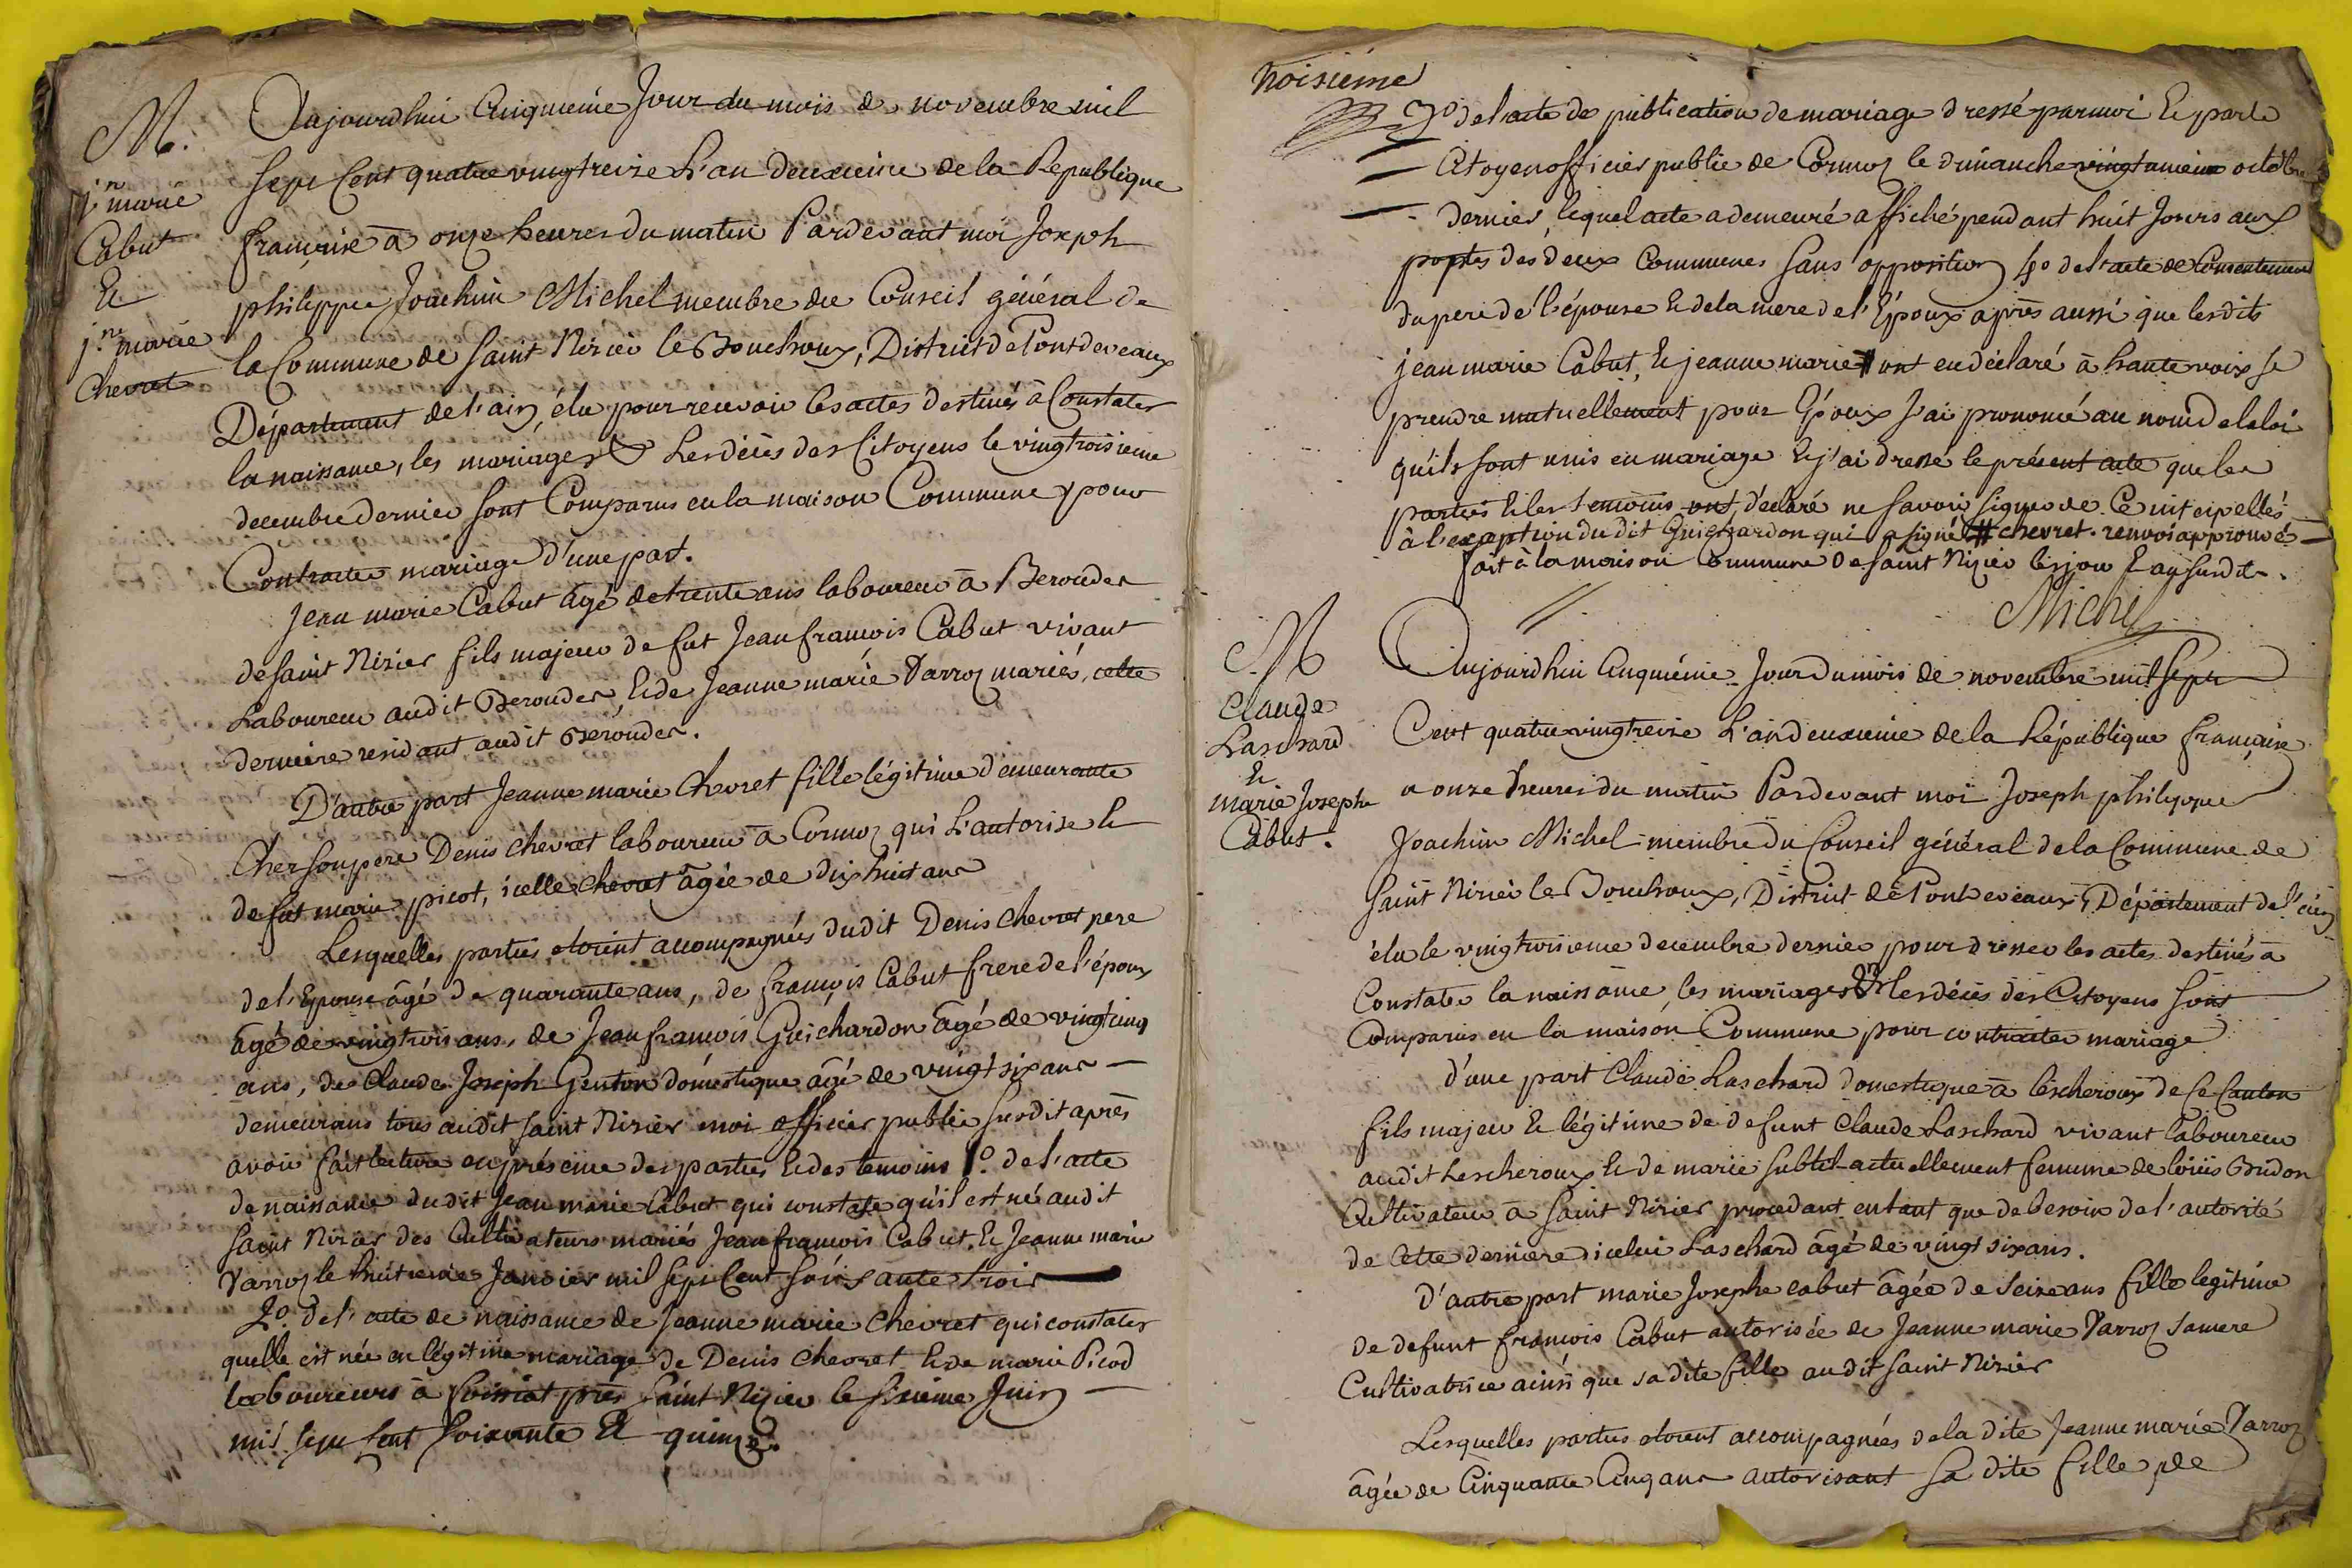 M.
j.n marie
Cabut
Et
j.ne marie
Chevret
Aujourdhui Cinquieme Jour du mois de novembre mil
Sept Cent quatre vingtreize L'an deuxieme de la Republique
française à onze heures du matin Pardevant moi Joseph
philippe Joachim Michel membre du Conseil général de
la Commune de Saint Nizier le Bouchoux, District de Pontdevaux
Département de l'ain, élu pour recevoir les actes destinés à Constater
la naissance, les mariages & Les décès des Citoyens le vingtroisieme
decembre dernier sont Comparus en la maison Commune pour
Contracter mariage d'une part.
Jean marie Cabut âgé de trente ans laboureur à Berouder
de saint Nizier fils majeur de fut Jean françois Cabut vivant
Laboureur audit Berouder, Et de Jeanne marie Varroz mariés, cette
derniere residant audit Berouder.
D'autre part Jeanne marie Chevret fille légitime demeurante
Cher son pere Denis Chevret laboureur à Cormoz qui L'autorise Et
de fut marie picot, icelle Chevret âgée de dix huit ans
Lesquelles parties etoient accompagnées dudit Denis Chevret pere
de l'Epouse âgé de quarante ans, de françois Cabut frere de l'époux
âgé de vingtrois ans, de Jean françois Guichardon âgé de vingt cinq
ans, de Claude Joseph Genton domestique âgé de vingt six ans
demeurans tous audit saint Nizier moi officier public susdit après
avoir fait lecture en présence des parties Et des temoins 1.o de l'acte
de naissance dudit Jean marie Cabut qui constate qu'il est né audit
Saint Nizier des Cultivateurs mariés Jean françois Cabut Et Jeanne marie
Varroz le huitieme Janvier mil sept Cent soixante trois
2.o de l'acte de naissance de Jeanne marie Chevret qui constate
quelle est née en légitime mariage de Denis Chevret Et de marie Picod
laboureurs à Cuissiat près Saint Nizier le sixieme Juin
mil sept Cent soixante Et quinze.
troisieme
3.o de l'acte de publication de mariage dressé par moi Et par le
Citoyen officier public de Cormoz le dimanche vingtunieme octobre
dernier, lequel acte a demeuré affiché pendant huit Jours aux
portes des deux Communes sans opposition 4.o de l'acte de Consentement
du pere de l'épouse Et de la mere de l'Époux après aussi que lesdits
jean marie Cabut, Et jeanne marie # ont eu déclaré à haute voix se
prendre mutuellement pour Epoux J'ai prononcé au nom de la loi
qu'ils sont unis en mariage Et j'ai dressé le présent acte que les
parties Et les temoins ont déclaré ne savoir signer de Ce interpellés
à l'exception dudit Guichardon qui a signé # chevret. renvoi approuvé
fait à la maison Commune de saint Nizier les jour Et an susdits.
Michel
M
Claude
Laschard
Et
marie Josephe
Cabut.
Aujourdhui Cinquiéme Jour du mois de novembre mil Sept
Cent quatre vingtreize L'an deuxieme de la République française
a onze heures du matin Pardevant moi Joseph philippe
Joachim Michel membre du Conseil général de la Commune de
Saint Nizier le Bouchoux, District de Pontdevaux, Département de l'ain
élu le vingtroisieme decembre dernier pour dresser les actes destinés à
Constater la naissance, les mariages & les décès des Citoyens sont
Comparus en la maison Commune pour contracter mariage
d'une part Claude Laschard domestique à lescheroux de ce Canton
fils majeur Et légitime de defunt Claude Laschard vivant laboureur
audit Lescheroux Et de marie Subtil actuellement femme de louis Bridon
Cultivateur à Saint Nizier procedant entant que de besoin de l'autorité
de Cette derniere icelui Laschard âgé de vingt six ans.
D'autre part marie Josephe cabut âgée de seize ans fille legitime
de defunt françois Cabut autorisée de Jeanne marie Varroz sa mere
Cultivatrice ainsi que sa dite fille audit saint Nizier
Lesquelles parties etoient accompagnées de la dite Jeanne marie Varroz
âgée de Cinquante Cinq ans autorisant sa dite fille, de